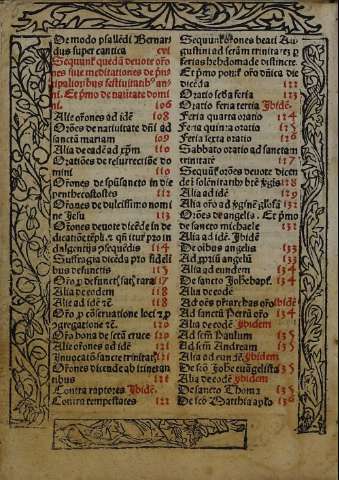 De modo psallēdi Bernar
dus super cantica cvi
Sequunt quedā deuote orō
nes siue meditationes de prin
cipalioribus festiuitatib' an
ni. Et prmo de natiitate domi
ni. 106
Alie orōnes ad idē 108
Orōes de natiuitate dni ad
sanctā mariam 109
Alia de eadē ad xpm 110
Oratiōes de resurrectiōe do
mini 110
Orōnes de spūsancto in die
penthecostes 112
Orōnes de dulcissimo nomi
ne Jesu 113
Orōnes deuote dicēde in de
dicatiōe tēpli. z. qn itur pro in
dulgentijs psequēdis 114
Suffragia dicēda pro fideli
bus defunctis 115
Orō p defunct
Alia de eodem 118
Alie ad idē 118
Orō p cōseruatione loci z p
gregatione 120
Orō bona de sctā cruce 120
Alie orōnes ad idē 121
Inuocatō sancte trinitat 121
Orōnes dicende ab itineran
tibus 126
Contra raptores Ibidē.
Contra tempestates 122
Sequunt orōnes beati Au
gustini ad sctām trinitatē p
ferias hebdomade distincte.
Et prmo orō dnica die
dicēda 122
Oratio scda feria 123
Oratio feria tertia Ibidē.
Feria quarta oratio 124
Feria quinta oratio 125
Feria sexta oratio 126
Sabbato oratio ad sanctam
trinitatē 127
Sequunt orōes deuote dicen
de i solēnitatib 128
Alia ad idē 129
Alia orō ad 132
Orōes de angelis. Et prmo
de sancto michaele 132
Alia ad idē. Ibidē
De oibus angelis 133
Ad angelū 133
Alia ad eundem 134
De sancto Johē bapt. 134
Alia de eodē
Ad oēs ptriarchas orō Ibidē
Ad sanctū Petrū orō 134
Alia de eodē Ibidem
Ad sctm Paulum 135
Ad sctm Andream 135
Alia ad eundē Ibidem
De scō Johē euāgelista 135
Alia de eodē Ibidem
De sancto Thoma 136
De scō Matthia aplo 136